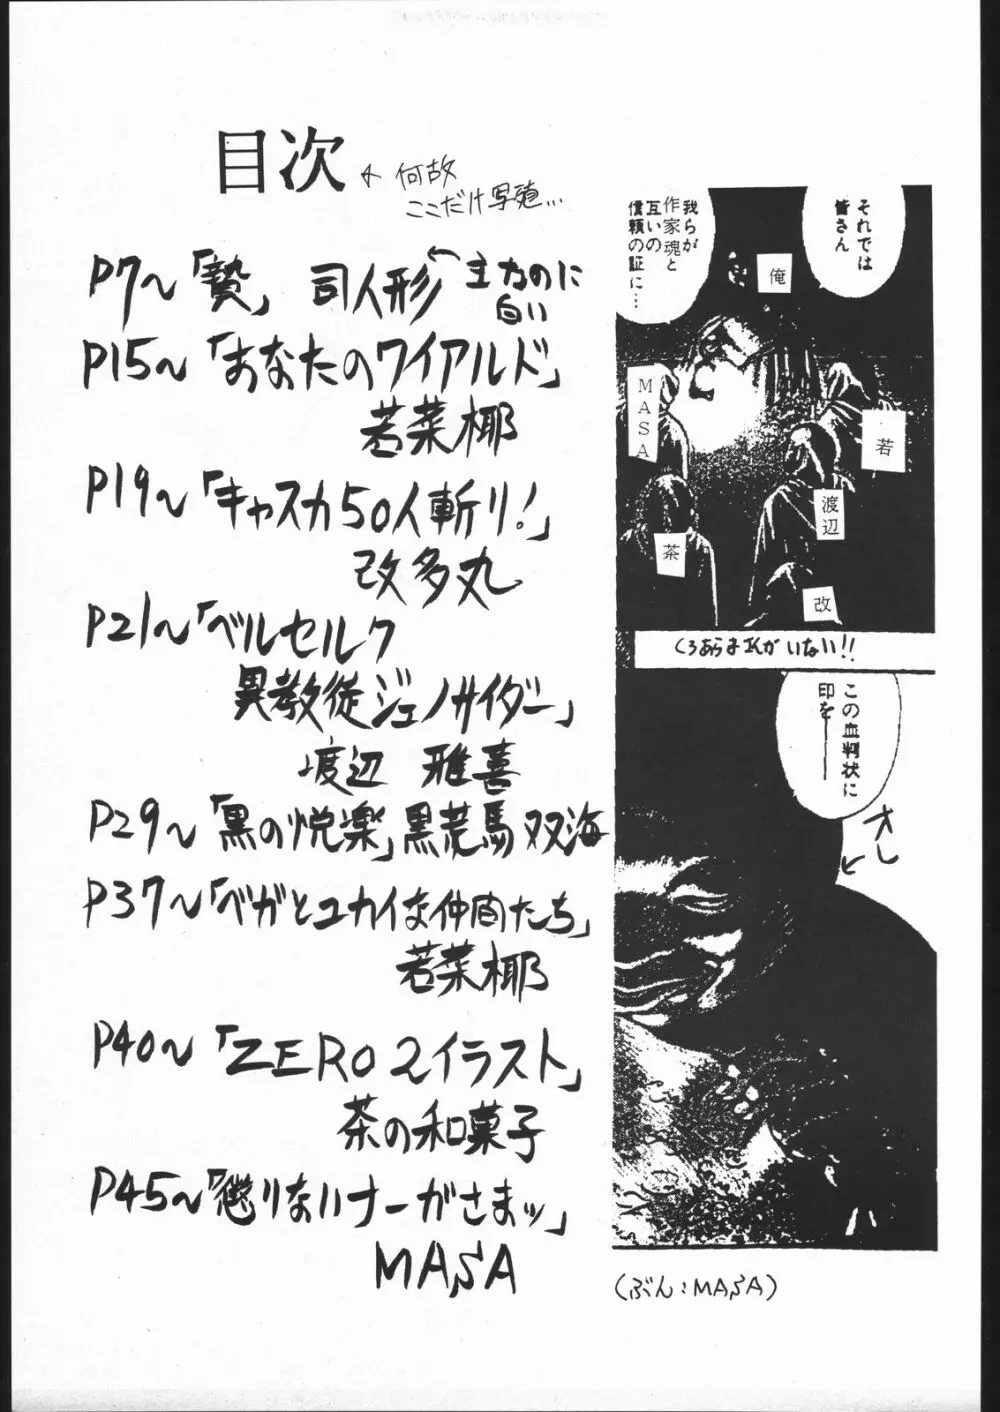 目次
←何故
ここだけ写植…
P7〜「贄」 司人形
←主なのに
白い
P15〜「あなたのワイアルド」
若菜椰
P19〜「キャスカ50人斬り!」
改多丸
P21〜「ベルセルク
異教徒ジェノサイダー」
渡辺 雅喜
P29〜「黒の悦楽」黒荒馬双海
P37〜「ベガとユカイな仲間たち」
若菜椰
P40〜「ZERO2イラスト」
茶の和菓子
P45〜「懲りないナーがさまッ」
MASA
それでは
皆さん
我らが
作家魂と
互いの
信頼の証に…
俺
MASA
若
渡辺
茶
改
くろあらまエんがいない!!
この血判状に
印を――
オレ
(ぶん:MASA)